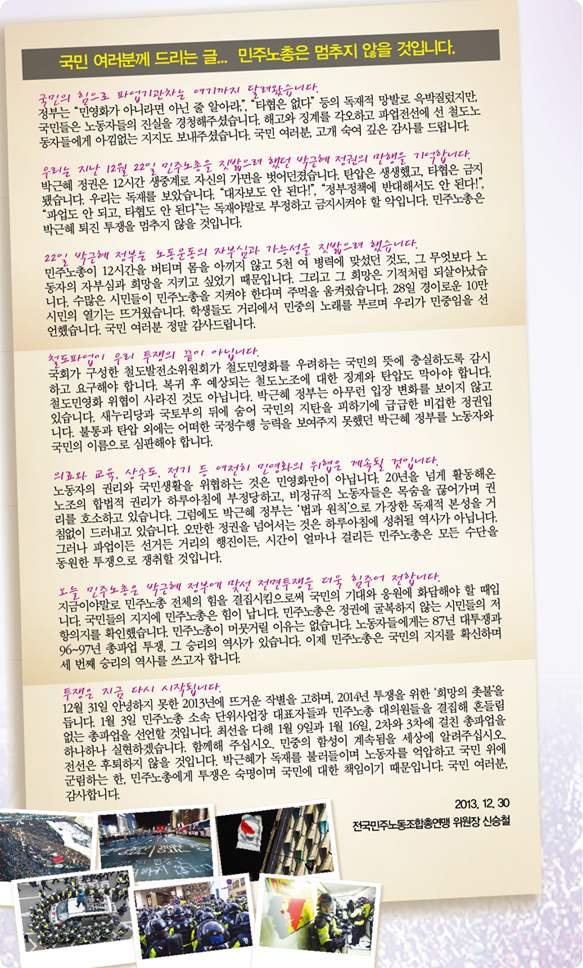 국민 여러분께 드리는 글... 민주노총은 멈추지 않을 것입니다.
국민의 힘으로 파업기관차는 여기까지 달려왔습니다.
정부는 “민영화가 아니라면 아닌 줄 알아라.”, “타협은 없다” 등의 독재적 망발로 윽박질렀지만,
국민들은 노동자들의 진실을 경청해주셨습니다. 해고와 징계를 각오하고 파업전선에 선 철도노
동자들에게 아낌없는 지지도 보내주셨습니다. 국민 여러분, 고개 숙여 깊은 감사를 드립니다.
우리는 지난 12월 22일 민주노총을 짓밟으려 했던 박근혜 정권의 만행을 기억합니다.
박근혜 정권은 12시간 생중계로 자신의 가면을 벗어던졌습니다. 탄압은 생생했고, 타협은 금지
됐습니다. 우리는 독재를 보았습니다. “대자보도 안 된다!”, “정부정책에 반대해서도 안 된다!”,
“파업도 안 되고, 타협도 안 된다”는 독재야말로 부정하고 금지시켜야 할 악입니다. 민주노총은
박근혜 퇴진 투쟁을 멈추지 않을 것입니다.
22일 박근혜 정부는 노동운동의 자부심과 가능성을 짓밟으려 했습니다.
민주노총이 12시간을 버티며 몸을 아끼지 않고 5천 여 병력에 맞섰던 것도, 그 무엇보다 노
동자의 자부심과 희망을 지키고 싶었기 때문입니다. 그리고 그 희망은 기적처럼 되살아났습
니다. 수많은 시민들이 민주노총을 지켜야 한다며 주먹을 움켜줬습니다. 28일 경이로운 10만
시민의 열기는 뜨거웠습니다. 학생들도 거리에서 민중의 노래를 부르며 우리가 민중임을 선
언했습니다. 국민 여러분 정말 감사드립니다.
철도파업이 우리 투쟁의 끝이 아닙니다.
국회가 구성한 철도발전소위원회가 철도민영화를 우려하는 국민의 뜻에 충실하도록 감시
하고 요구해야 합니다. 복귀 후 예상되는 철도노조에 대한 징계와 탄압도 막아야 합니다.
철도민영화 위협이 사라진 것도 아닙니다. 박근혜 정부는 아무런 입장 변화를 보이지 않고
있습니다. 새누리당과 국토부의 뒤에 숨어 국민의 지탄을 피하기에 급급한 비겁한 정권입
니다. 불통과 탄압 외에는 어떠한 국정수행 능력을 보여주지 못했던 박근혜 정부를 노동자와
국민의 이름으로 심판해야 합니다.
의료와 교육, 상수도, 전기 등 여전히 민영화의 위협은 계속될 것입니다.
노동자의 권리와 국민생활을 위협하는 것은 민영화만이 아닙니다. 20년을 넘게 활동해온
노조의 합법적 권리가 하루아침에 부정당하고, 비정규직 노동자들은 목숨을 끊어가며 권
리를 호소하고 있습니다. 그럼에도 박근혜 정부는 ‘법과 원칙’으로 가장한 독재적 본성을 거
침없이 드러내고 있습니다. 오만한 정권을 넘어서는 것은 하루아침에 성취될 역사가 아닙니다.
그러나 파업이든 선거든 거리의 행진이든, 시간이 얼마나 걸리든 민주노총은 모든 수단을
동원한 투쟁으로 쟁취할 것입니다.
오늘 민주노총은 박근혜 정부에 맞선 전면투쟁을 더욱 힘주어 전합니다.
지금이야말로 민주노총 전체의 힘을 결집시킴으로써 국민의 기대와 응원에 화답해야 할 때입
니다. 국민들의 지지에 민주노총은 힘이 납니다. 민주노총은 정권에 굴복하지 않는 시민들의 저
항의지를 확인했습니다. 민주노총이 머뭇거릴 이유는 없습니다. 노동자들에게는 87년 대투쟁과
96~97년 총파업 투쟁, 그 승리의 역사가 있습니다. 이제 민주노총은 국민의 지지를 확신하며
세 번째 승리의 역사를 쓰고자 합니다.
투쟁은 지금 다시 시작됩니다.
12월 31일 안녕하지 못한 2013년에 뜨거운 작별을 고하며, 2014년 투쟁을 위한 ‘희망의 촛불’을
듭니다. 1월 3일 민주노총 소속 단위사업장 대표자들과 민주노총 대의원들을 결집해 흔들림
없는 총파업을 선언할 것입니다. 최선을 다해 1월 9일과 1월 16일, 2차와 3차에 걸친 총파업을
하나하나 실현하겠습니다. 함께해 주십시오. 민중의 함성이 계속됨을 세상에 알려주십시오.
전선은 후퇴하지 않을 것입니다. 박근혜가 독재를 불러들이며 노동자를 억압하고 국민 위에
군림하는 한, 민주노총에게 투쟁은 숙명이며 국민에 대한 책임이기 때문입니다. 국민 여러분,
감사합니다.
2013. 12. 30
전국민주노동조합총연맹 위원장 신승철